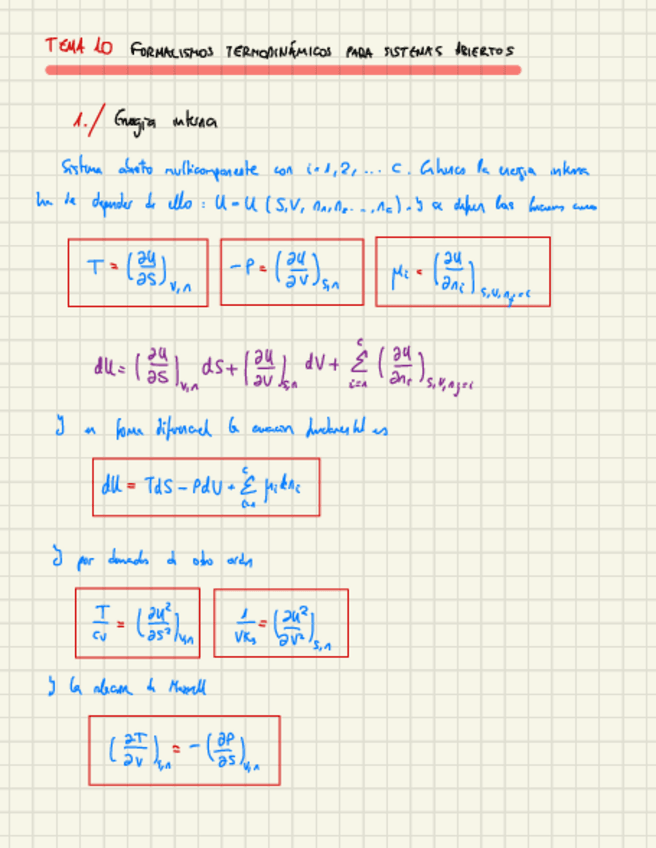 TEMA 10 FORMALISMOS TERMODINÁMICOS PARA SISTEMAS ABIERTOS
1./ Energía interna
Sistema abierto multicomponente con i=1,2,... c. la energía interna
ha de depender de ello: U=U(S,V,n₁,n₂...,nc). y se definen las
T = (∂U/∂S)V,n
-P = (∂U/∂V)S,n
μi = (∂U/∂ni)S,V,nj≠i
dU = (∂U/∂S)V,n dS + (∂U/∂V)S,n dV + Σ (∂U/∂ni)S,V,nj≠i
y en forma diferencial la ecuación fundamental es
dU = TdS - PdV + Σ μi dni
y por derivadas de otro orden
T/cv = (∂U²/∂S²)V,n
1/VKs = (∂U²/∂V²)S,n
y la relación de Maxwell
(∂T/∂V)S,n = -(∂P/∂S)V,n